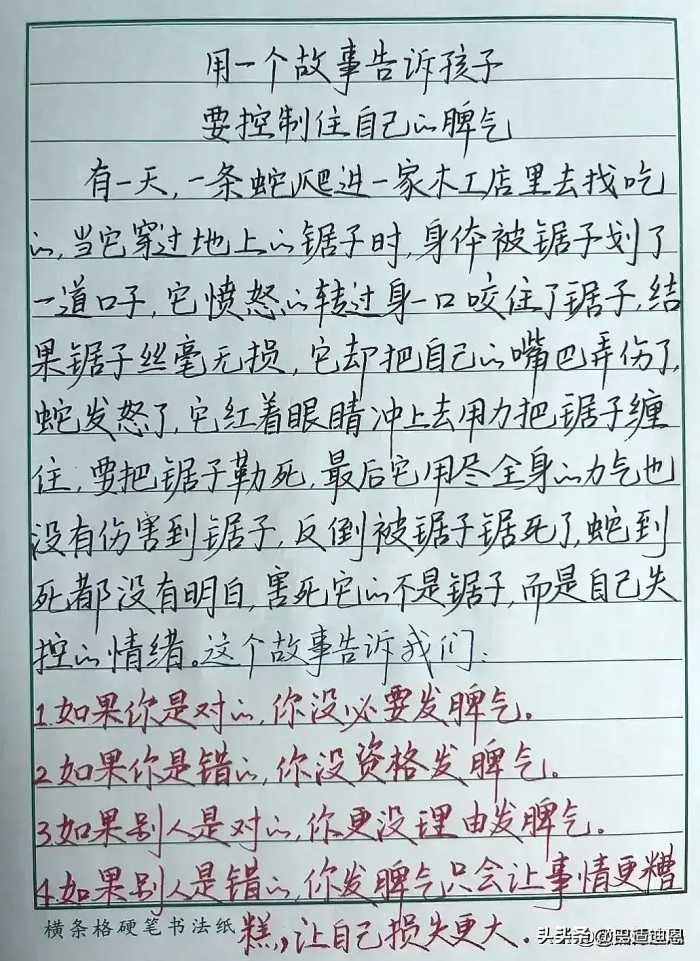 用一个故事告诉孩子
要控制住自己的脾气
有一天,一条蛇爬进一家木工店里去找吃
的,当它穿过地上的锯子时,身体被锯子划了
一道口子,它愤怒的转过身一口咬住了锯子,结
果锯子丝毫无损,它却把自己的嘴巴弄伤了,
蛇发怒了,它红着眼睛冲上去用力把锯子缠
住,要把锯子勒死,最后它用尽全身的力气也
没有伤害到锯子,反倒被锯子锯死了,蛇到
死都没有明白,害死它的不是锯子,而是自己失
控的情绪。这个故事告诉我们:
1.如果你是对的,你没必要发脾气。
2.如果你是错的,你没资格发脾气。
3.如果别人是对的,你更没理由发脾气。
4.如果别人是错的,你发脾气只会让事情更糟
糕,让自己损失更大.
横条格硬笔书法纸
头条 @巴渣迪恩